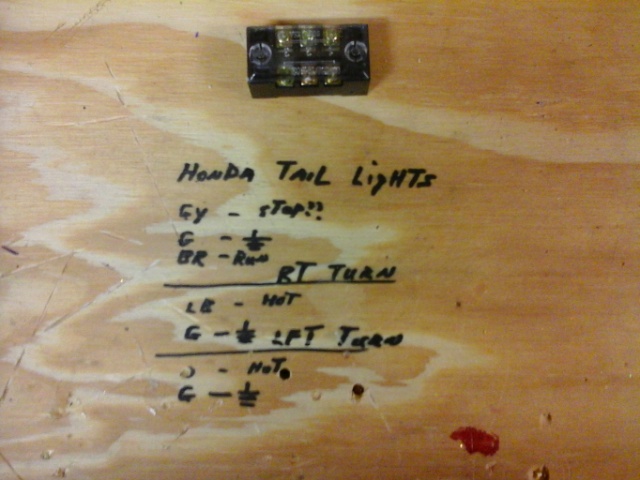 HONDA TAIL LIGHTS
GY - STOP??
G - ⏚
BR - RUN
RT TURN
LB - HOT
G - ⏚ LFT TURN
O - HOT
G - ⏚